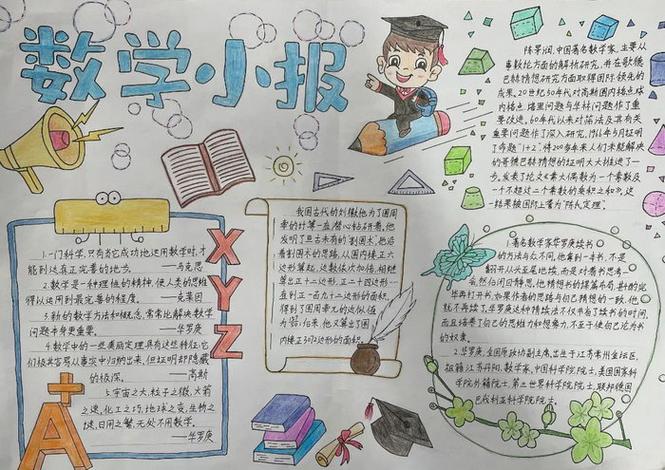 数学小报
陈景润,中国著名数学家,主要从
事数论方面的解析研究,并在歌德
巴赫猜想研究方面取得国际领先的
成果。20世纪50年代对高斯圆内格点球
内格点 塔里问题与华林问题作了重
要改进。60年代以来对筛法及其有关
重要问题作了深入研究,1966年5月证明
了命题"1+2",将200多年来人们未能解决
的哥德巴赫猜想的证明大大推进了一
步。发表了论文《素大偶数为一个素数及
一个不超过二个素数的乘积之和》,这
一结果被国际上誉为"陈氏定理"。
1.一门科学,只有当它成功地运用数学时,才
能到达真正完善的地步。——马克思
2.数学是一种理性的精神,使人类的思维
得以运用到最完善的程度。——克莱因
3.新的数学方法和概念,常常比解决数学
问题本身更重要。——华罗庚
4.数学中的一些美丽定理具有这些特征:它
们极其容易从事实中归纳出来,但证明却隐藏
的极深。——高斯
5.宇宙之大,粒子之微,火箭
之速,化工之巧,地球之变,生物之
谜,日用之繁,无处不用数学。
——华罗庚
X
Y
Z
A+
我国古代的刘徽他为了圆周
率的计算一直潜心钻研着。他
发明了亘古未有的"割圆术"。他沿
着割圆术的思路,从圆内接正六
边形算起,边数依次加倍,相继
算出正十二边形,正二十四边形…
直到正一百九十二边形的面积,
得到了圆周率元的近似值
为 后来,他又算出了圆
内接正3072边形的面积。
1.著名数学家华罗庚读书
的方法与众不同。他拿到一本书,不是
翻开从头至尾地读,而是对着书思考一
会,然后闭目静思,他猜想书的谋篇布局,斟酌完
毕再打开书,如果作者的思路与自己猜想的一致,他
就不再读了,华罗庚这种猜读法不仅节省了读书的时间,
而且培养了自己的思维力和想象力,不至于使自己沦为书
的奴隶。
2.华罗庚,全国原政协副主席,出生于江苏常州金坛区,
祖籍江苏丹阳,数学家,中国科学院院士,美国国家科
学院外籍院士,第三世界科学院院士,联邦德国
巴伐利亚科学院院士。